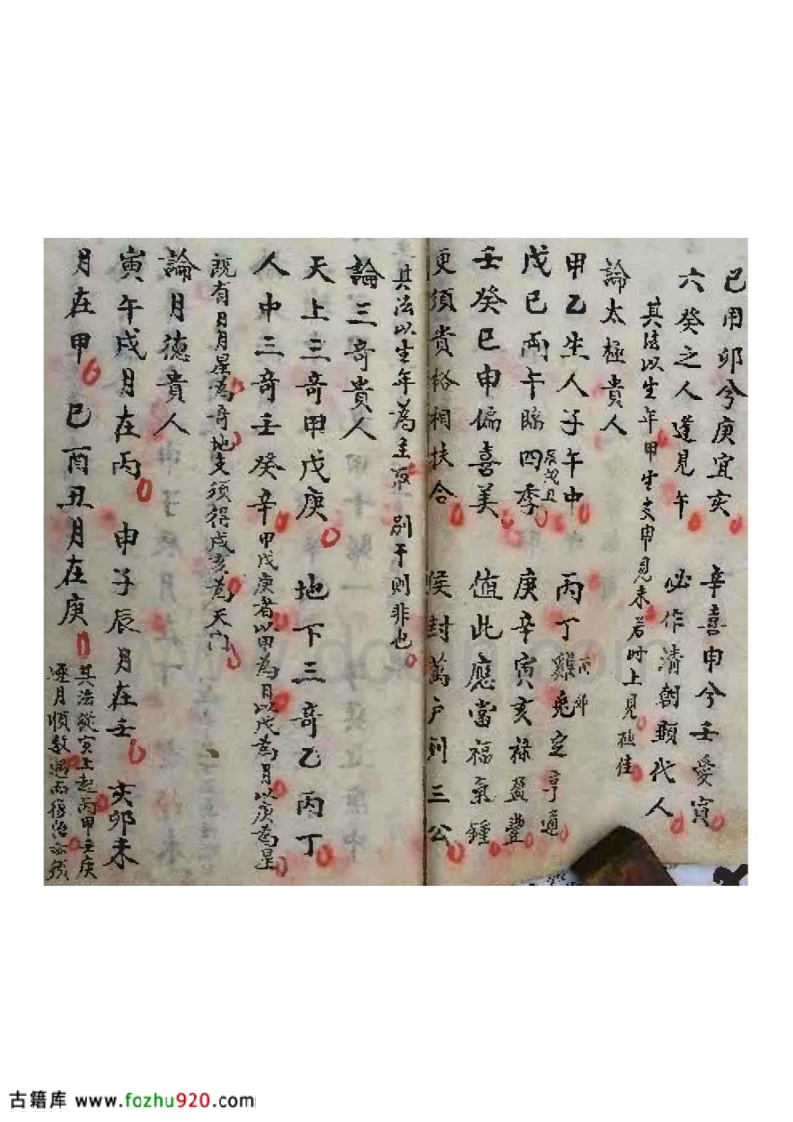 己用卯兮庚宜亥　辛喜申兮壬愛寅
六癸之人逢見午　必作清朝顕代人
其法以生年甲生支申見未若時上見極佳
論太極貴人
甲乙生人子午中　丙丁雞兎定亨通
酉卯
戊己兩干臨四季　庚辛寅亥祿盈豐
辰戌丑
壬癸巳申偏喜美　值此應當福氣鍾
更須貴格相扶合　候封萬戶列三公
其法以生年為主取　別于則非也
論三奇貴人
天上三奇甲戊庚　地下三奇乙丙丁
人中三奇壬癸辛　甲戊庚者以甲為日以戊為月以庚為星
既有日月星為奇地支須得戌亥為天門
論月德貴人
寅午戌月在丙　申子辰月在壬　亥卯未
月在甲　巳酉丑月在庚　其法從寅上起丙甲壬庚
逐月順数遇而復始
古籍库 www.fozhu920.com